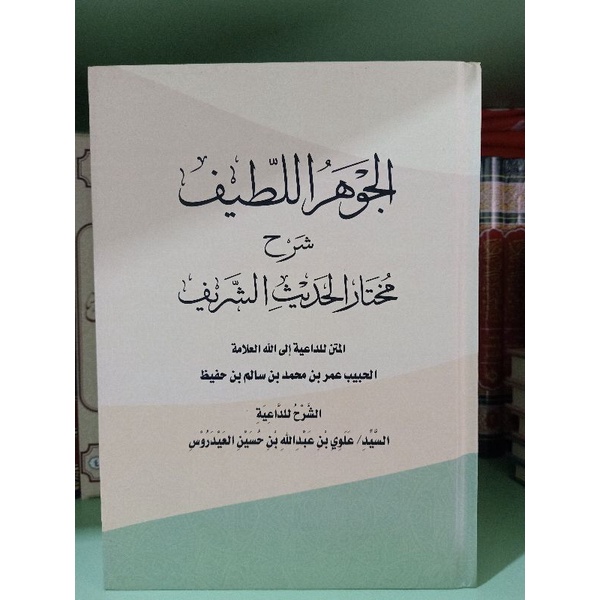 الجَوْهَرُ اللَّطِيف
شَرْح
مُخْتَارِ الحَدِيثِ الشَّرِيفِ
المتن للداعية إلى الله العلامة
الحبيب عمر بن محمد بن سالم بن حفيظ
الشَّرْحُ للدَّاعِيَةِ
السَّيِّدِ/ عَلَوِي بْنِ عَبْدِاللهِ بْنِ حُسَيْنِ العَيْدَرُوْسِ